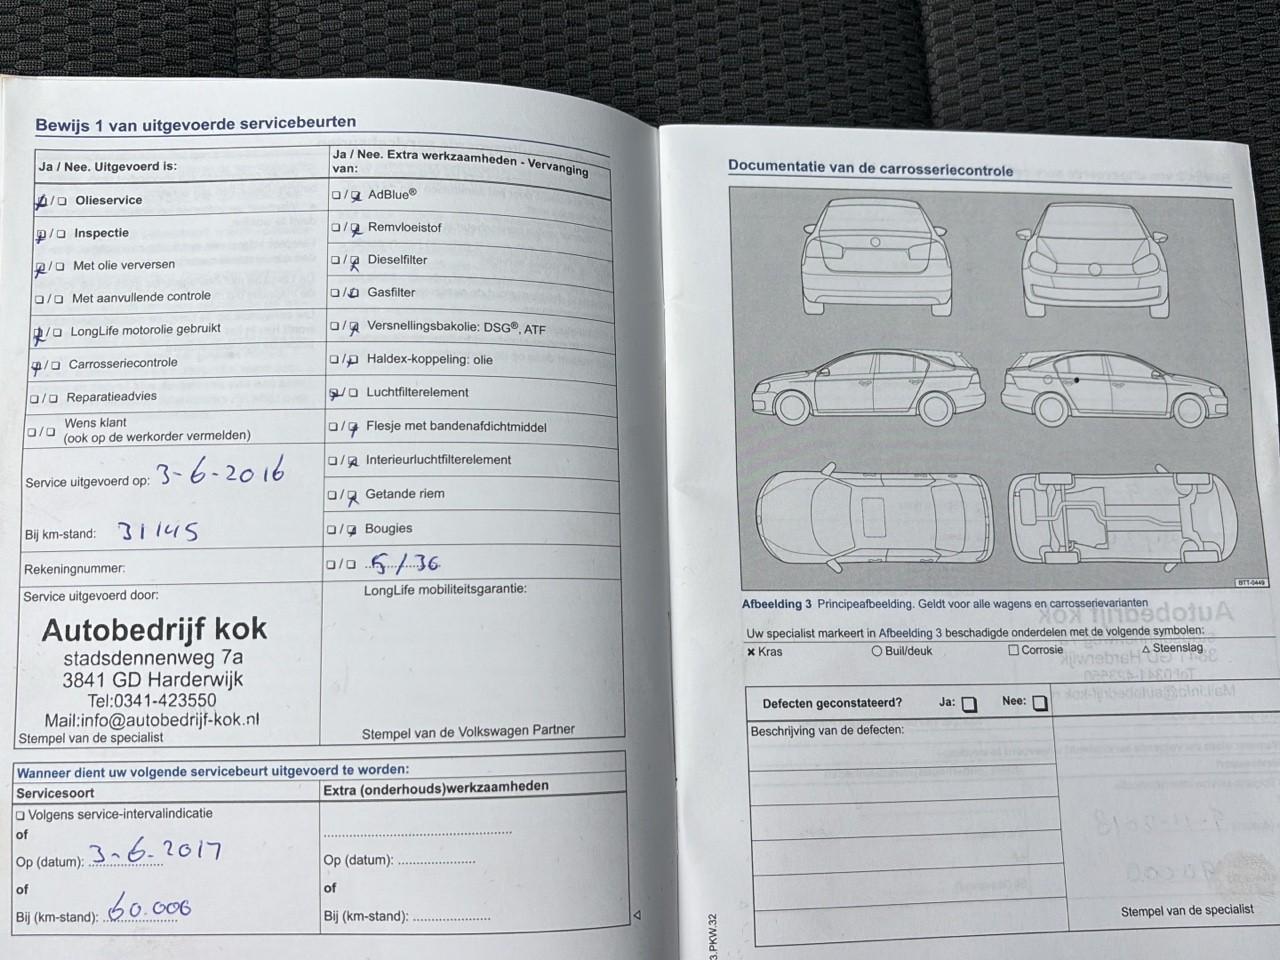 Bewijs 1 van uitgevoerde servicebeurten
Ja / Nee. Uitgevoerd is:
☒/☐ Olieservice
☒/☐ Inspectie
☒/☐ Met olie verversen
☐/☐ Met aanvullende controle
☒/☐ LongLife motorolie gebruikt
☒/☐ Carrosseriecontrole
☐/☐ Reparatieadvies
☐/☐ Wens klant
(ook op de werkorder vermelden)
Service uitgevoerd op: 3-6-2016
Bij km-stand: 31145
Rekeningnummer:
Service uitgevoerd door:
Autobedrijf kok
stadsdennenweg 7a
3841 GD Harderwijk
Tel:0341-423550
Mail:info@autobedrijf-kok.nl
Stempel van de specialist
Ja / Nee. Extra werkzaamheden - Vervanging
van:
☐/☒ AdBlue®
☐/☒ Remvloeistof
☐/☒ Dieselfilter
☐/☒ Gasfilter
☐/☒ Versnellingsbakolie: DSG®, ATF
☐/☒ Haldex-koppeling: olie
☒/☐ Luchtfilterelement
☐/☒ Flesje met bandenafdichtmiddel
☐/☒ Interieurluchtfilterelement
☐/☒ Getande riem
☐/☒ Bougies
☐/☐ 5/36
LongLife mobiliteitsgarantie:
Stempel van de Volkswagen Partner
Wanneer dient uw volgende servicebeurt uitgevoerd te worden:
Servicesoort
☐ Volgens service-intervalindicatie
of
Op (datum): 3-6-2017
of
Bij (km-stand): 60.000
Extra (onderhouds)werkzaamheden
Op (datum):
of
Bij (km-stand):
Documentatie van de carrosseriecontrole
BTT-0449
Afbeelding 3 Principeafbeelding. Geldt voor alle wagens en carrosserievarianten
Uw specialist markeert in Afbeelding 3 beschadigde onderdelen met de volgende symbolen:
× Kras ○ Buil/deuk □ Corrosie △ Steenslag
Defecten geconstateerd? Ja: ☐ Nee: ☐
Beschrijving van de defecten:
Stempel van de specialist
3.PKW.32